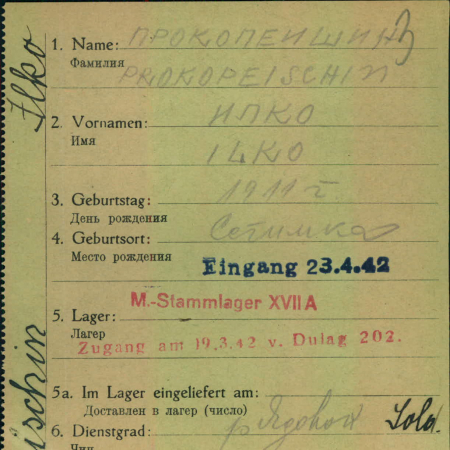 Ilko
ischin
1. Name: ПРОКОПЕИШИН
Фамилия
PROKOPEISCHIN
2. Vornamen: ИЛКО
Имя
ILKO
3. Geburtstag: 1911 г.
День рождения
4. Geburtsort:
Место рождения
Eingang 23.4.42
M.-Stammlager XVII A
5. Lager:
Лагер
Zugang am 19.3.42 v. Dulag 202.
5a. Im Lager eingeliefert am:
Доставлен в лагер (число)
6. Dienstgrad: Sold.
Чин